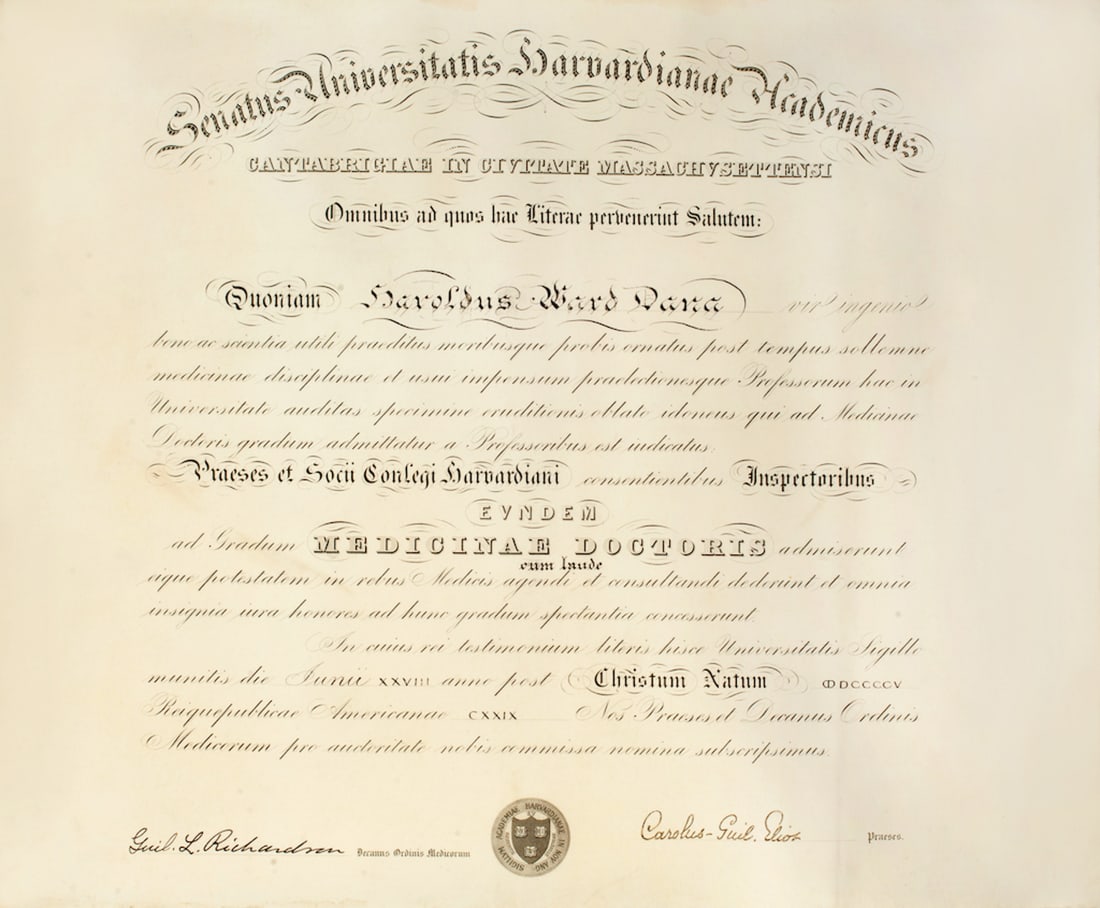 Senatus Universitatis Harvardianae Academicus
CANTABRIGIAE IN CIVITATE MASSACHVSETTENSI
Omnibus ad quos hae Literae pervenerint Salutem:
Quoniam Haroldus Ward Dana vir ingenio
bono ac scientia utili praeditus moribusque probis ornatus post tempus sollemne
medicinae disciplinae et usui impensum praelectionesque Professorum hac in
Universitate auditas specimine eruditionis oblato idoneus qui ad Medicinae
Doctoris gradum admittatur a Professoribus est iudicatus.
Praeses et Socii Conlegi Harvardiani consentientibus Inspectoribus
EVNDEM
ad Gradum MEDICINAE DOCTORIS admiserunt
cum laude
eique potestatem in rebus Medicis agendi et consultandi dederunt et omnia
insignia iura honores ad hunc gradum spectantia concesserunt.
In cuius rei testimonium literis hisce Universitatis Sigillo
munitis die Iunii XXVIII anno post Christum Natum ↀDCCCCV
Reiquepublicae Americanae CXXIX Nos Praeses et Decanus Ordinis
Medicorum pro auctoritate nobis commissa nomina subscripsimus.
Guil. L. Richardson Decanus Ordinis Medicorum
SIGILLVM ACADEMIAE HARVARDIANAE IN NOV. ANG.
Carolus-Guil. Eliot Praeses.